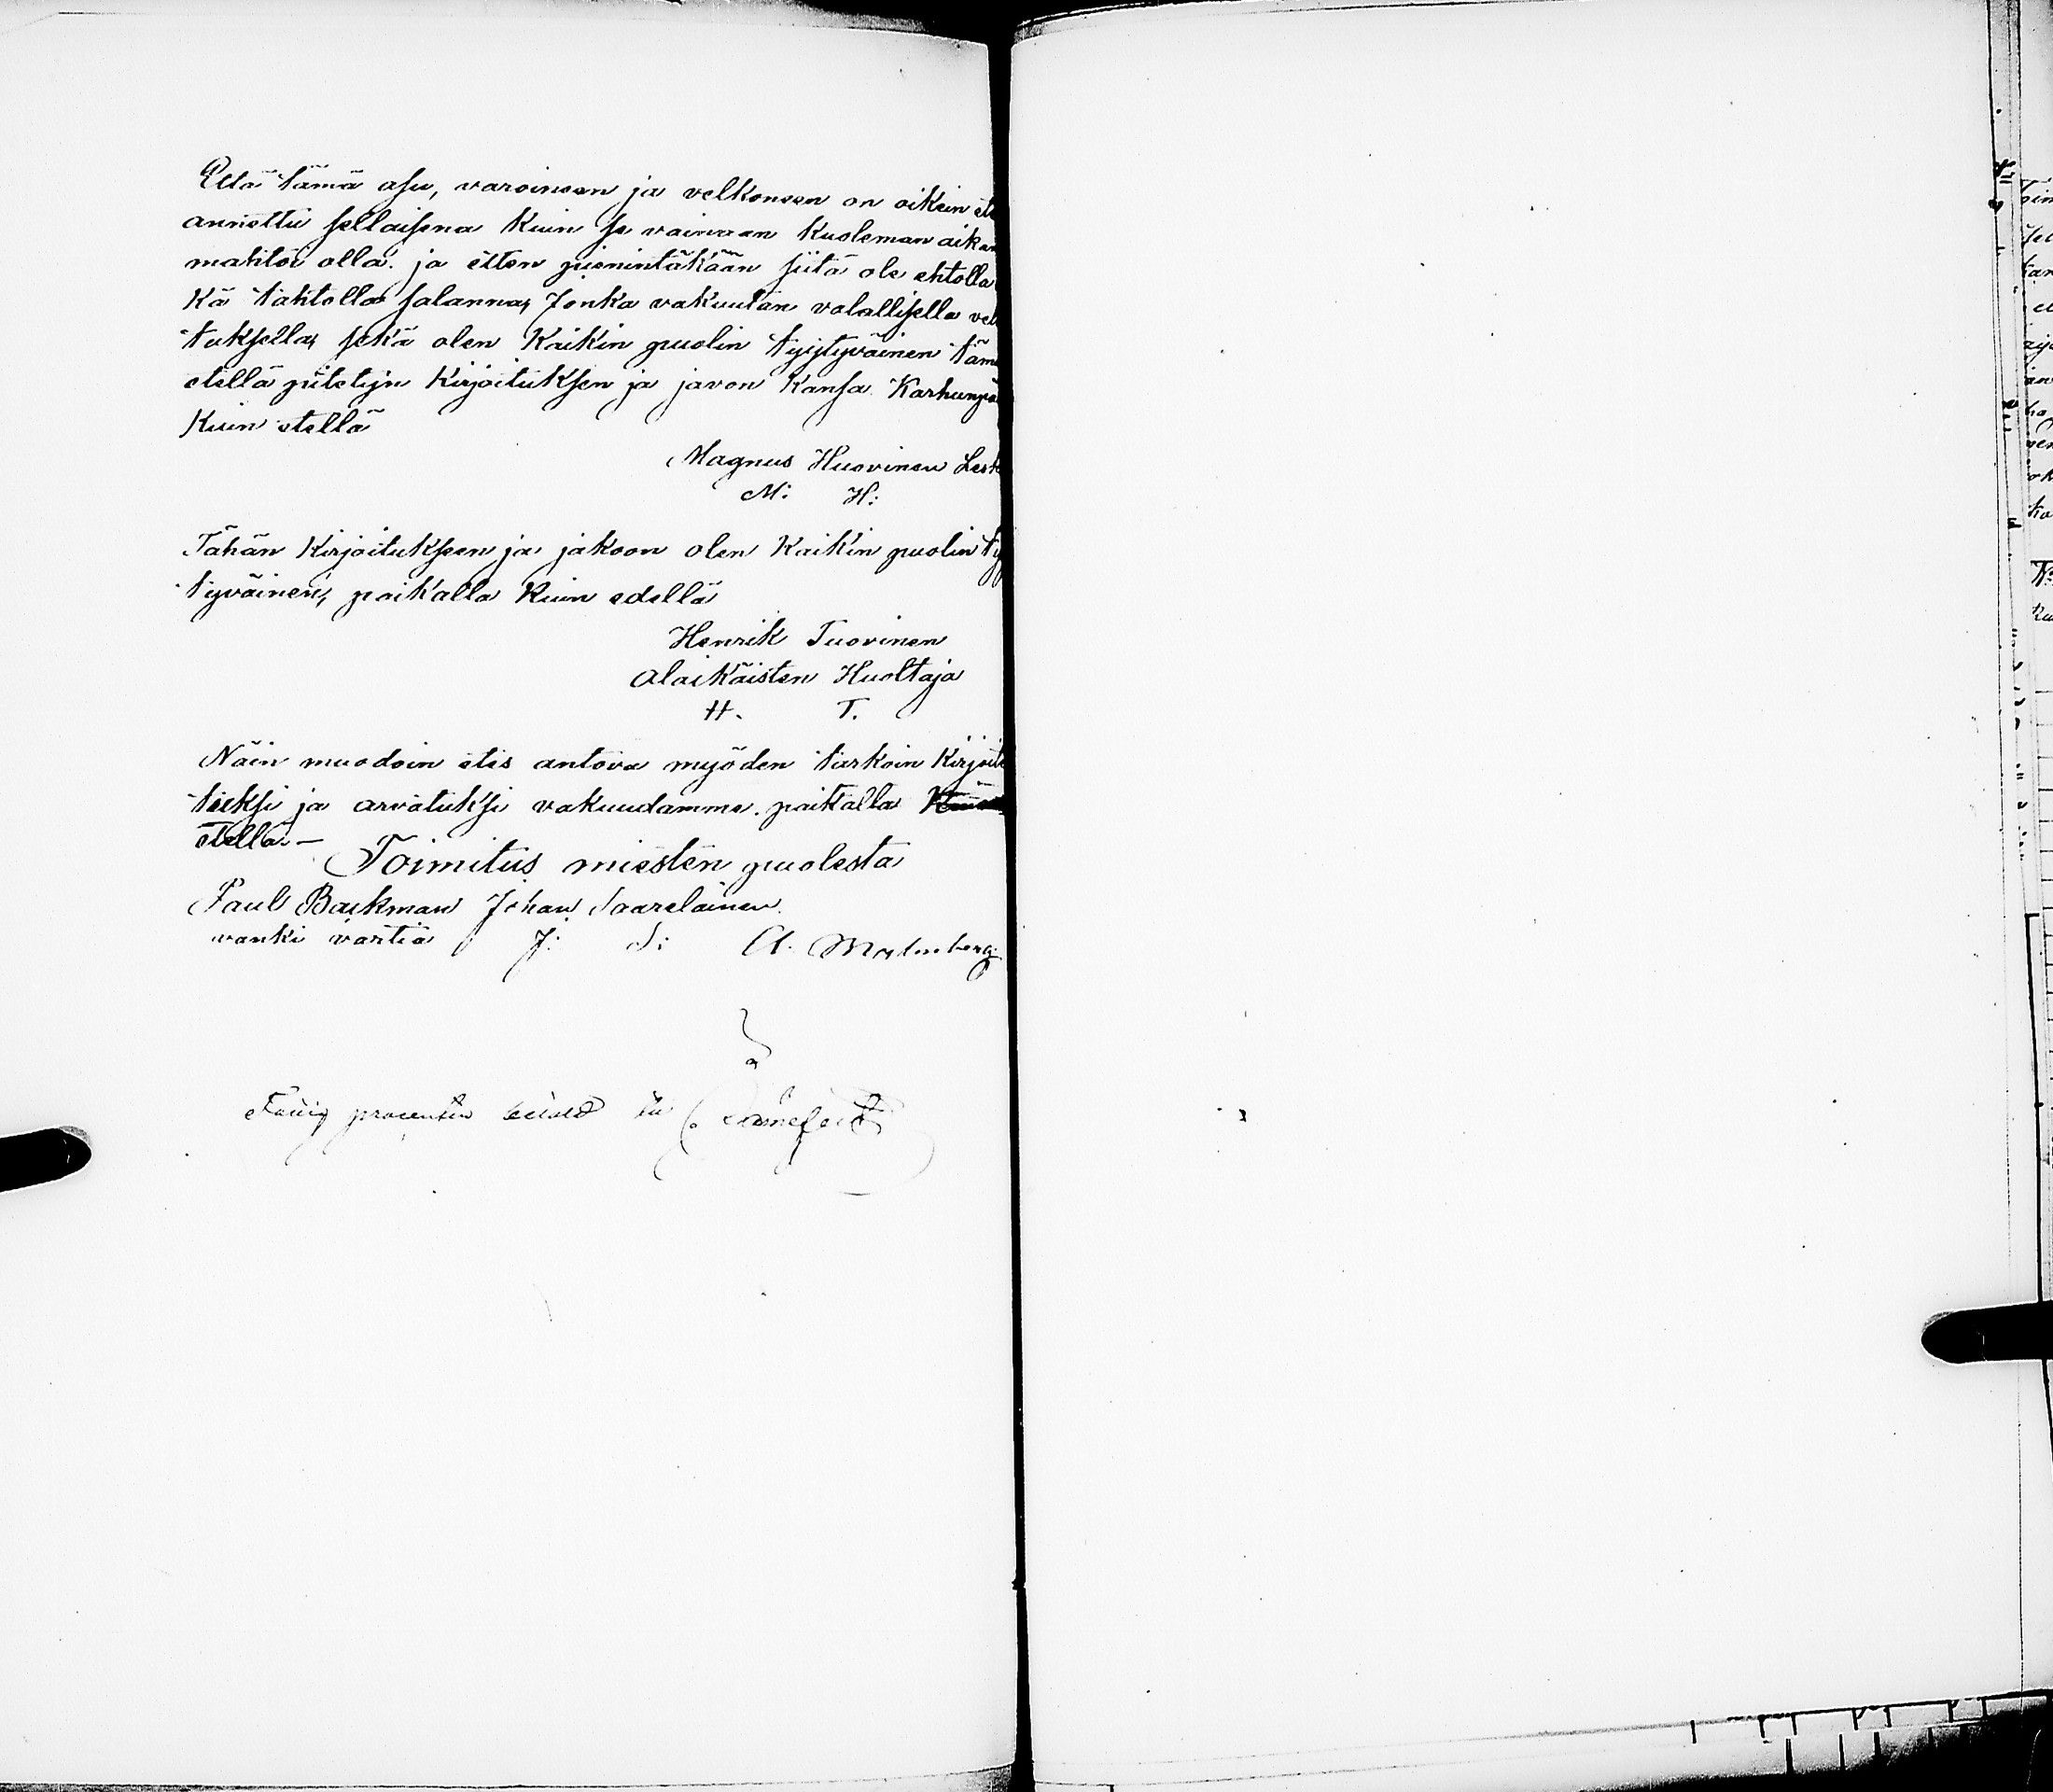 Että tämä asu, varoineen ja velkoneen on oikein ete
annettu sellaisena kuin se vainaan kuoleman aikan
mahtoi olla. ja etten pienintäkään siitä ole ehtolla
kä tahtolla salannas, Jonka vakuutan valallisella vel
tuksella, sekä olen kaikin puolin tyijtyväinen täm
etellä pitetyn kirjoituksen ja javon kansa Karhunpä
kuin etellä
Magnus Huovinen Lesk
M: H:
Tähän kirjoitukseen ja jakoon olen kaikin puolin ty
tyväinen, paikalla kuin edellä
Henrik Tuovinen
Alaikäisten Huoltaja
H. T.
Näin muodoin etes antova myöden tarkoin kirjoite
tueksi ja arvatuksi vakuudamme. paikalla
etellä. —
Toimitus miesten puolesta
Paul Backman Johan Saarelainen
vanki vartia J: S: A. Malmberg
Fattig procenten